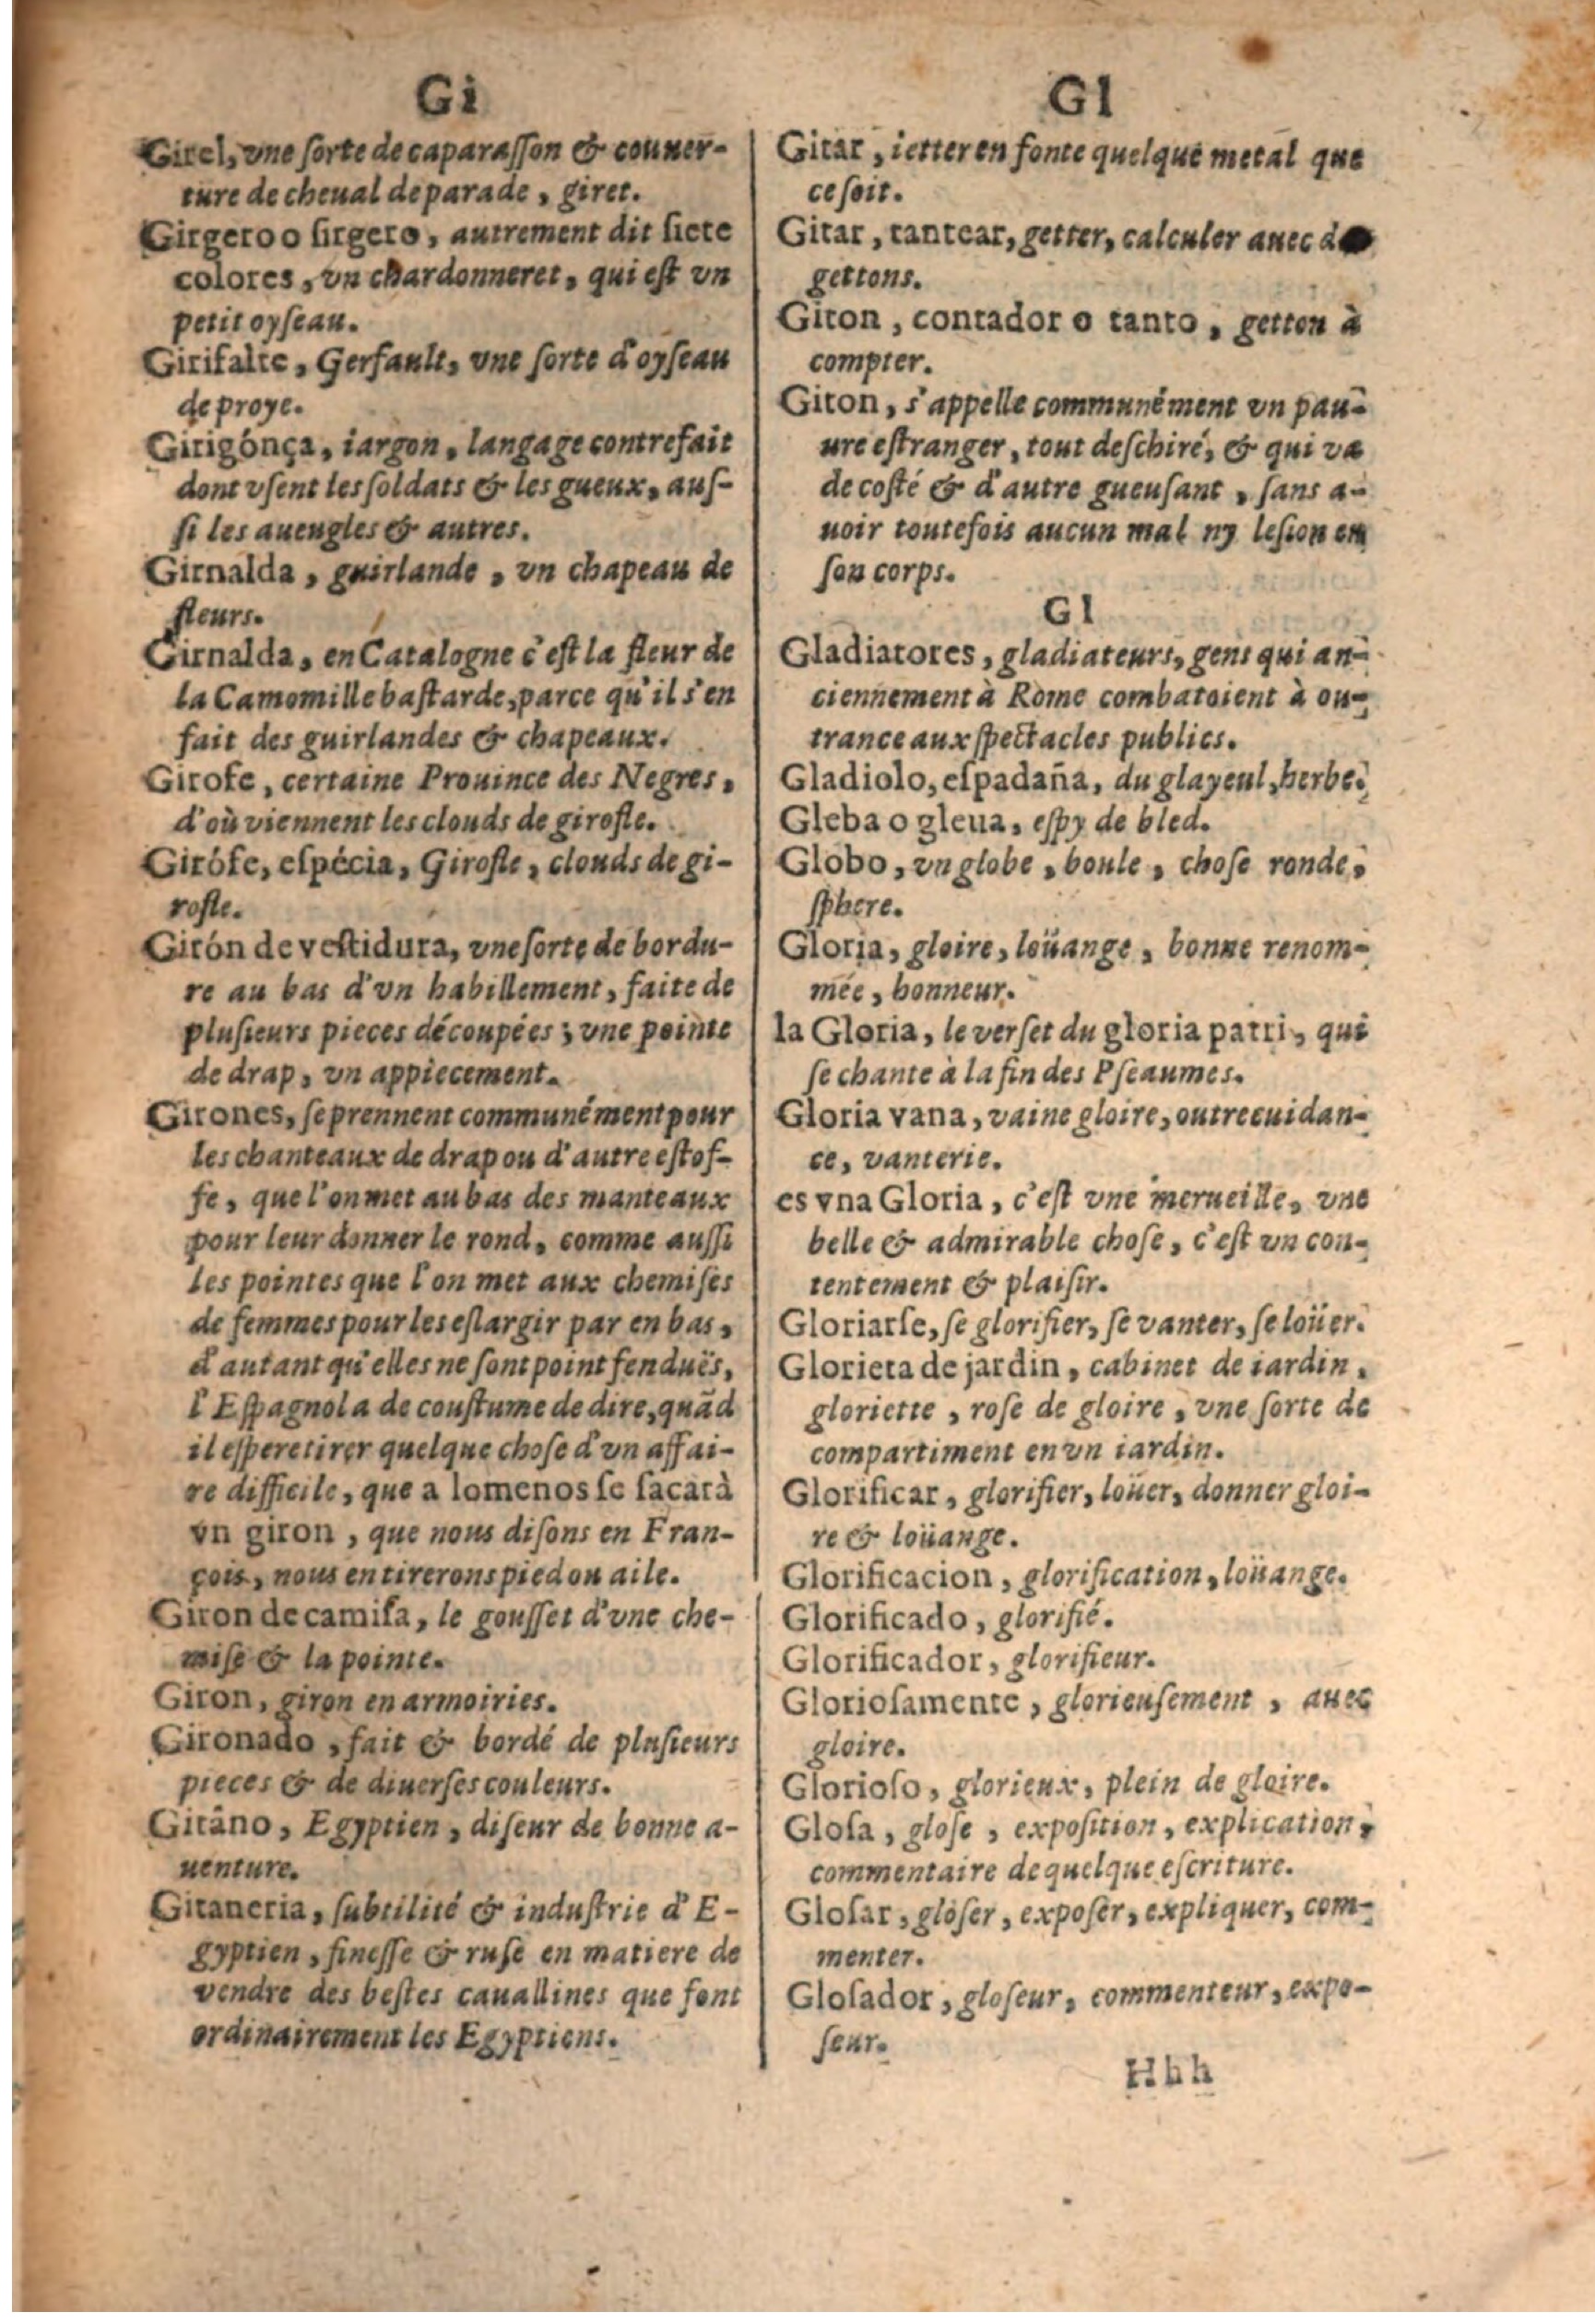 Gi
Girel, vne ſorte de caparaſſon & couuer-
ture de cheual de parade, giret.
Girgero o ſirgero, autrement dit ſiete
colores, vn chardonneret, qui eſt vn
petit oyſeau.
Girifalte, Gerfault, vne ſorte d'oyſeau
de proye.
Girigónça, iargon, langage contrefait
dont vſent les ſoldats & les gueux, auſ-
ſi les aueugles & autres.
Girnalda, guirlande, vn chapeau de
fleurs.
Girnalda, en Catalogne c'eſt la fleur de
la Camomille baſtarde, parce qu'il s'en
fait des guirlandes & chapeaux.
Girofe, certaine Prouince des Negres,
d'où viennent les clouds de girofle.
Girófe, eſpécia, Girofle, clouds de gi-
rofle.
Girón de veſtidura, vne ſorte de bordu-
re au bas d'vn habillement, faite de
pluſieurs pieces découpées; vne pointe
de drap, vn appiecement.
Girones, ſe prennent communément pour
les chanteaux de drap ou d'autre eſtof-
fe, que l'on met au bas des manteaux
pour leur donner le rond, comme auſſi
les pointes que l'on met aux chemiſes
de femmes pour les eſlargir par en bas,
d'autant qu'elles ne ſont point fenduës,
l'Eſpagnol a de couſtume de dire, quãd
il eſpere tirer quelque choſe d'vn affai-
re difficile, que a lomenos ſe ſacarà
vn giron, que nous diſons en Fran-
çois, nous en tirerons pied ou aile.
Giron de camiſa, le gouſſet d'vne che-
miſe & la pointe.
Giron, giron en armoiries.
Gironado, fait & bordé de pluſieurs
pieces & de diuerſes couleurs.
Gitâno, Egyptien, diſeur de bonne a-
uenture.
Gitaneria, ſubtilité & induſtrie d'E-
gyptien, fineſſe & ruſe en matiere de
vendre des beſtes cauallines que font
ordinairement les Egyptiens.
Gl
Gitar, ietter en fonte quelque metal que
ce ſoit.
Gitar, tantear, getter, calculer auec
gettons.
Giton, contador o tanto, getton à
compter.
Giton, s'appelle communément vn pau-
ure eſtranger, tout deſchiré, & qui va
de coſté & d'autre gueuſant, ſans a-
uoir toutefois aucun mal ny leſion en
ſon corps.
Gl
Gladiatores, gladiateurs, gens qui an-
ciennement à Rome combatoient à ou-
trance aux ſpectacles publics.
Gladiolo, eſpadaña, du glayeul, herbe.
Gleba o gleua, eſpy de bled.
Globo, vn globe, boule, choſe ronde,
ſphere.
Gloria, gloire, loüange, bonne renom-
mée, honneur.
la Gloria, le verſet du gloria patri, qui
ſe chante à la fin des Pſeaumes.
Gloria vana, vaine gloire, outrecuidan-
ce, vanterie.
es vna Gloria, c'eſt vne merueille, vne
belle & admirable choſe, c'eſt vn con-
tentement & plaiſir.
Gloriarſe, ſe glorifier, ſe vanter, ſe loüer.
Glorieta de jardin, cabinet de iardin,
gloriette, roſe de gloire, vne ſorte de
compartiment en vn iardin.
Glorificar, glorifier, loüer, donner gloi-
re & loüange.
Glorificacion, glorification, loüange.
Glorificado, glorifié.
Glorificador, glorifieur.
Glorioſamente, glorieuſement, auec
gloire.
Glorioſo, glorieux, plein de gloire.
Gloſa, gloſe, expoſition, explication,
commentaire de quelque eſcriture.
Gloſar, gloſer, expoſer, expliquer, com-
menter.
Gloſador, gloſeur, commenteur, expo-
ſeur.
Hhh